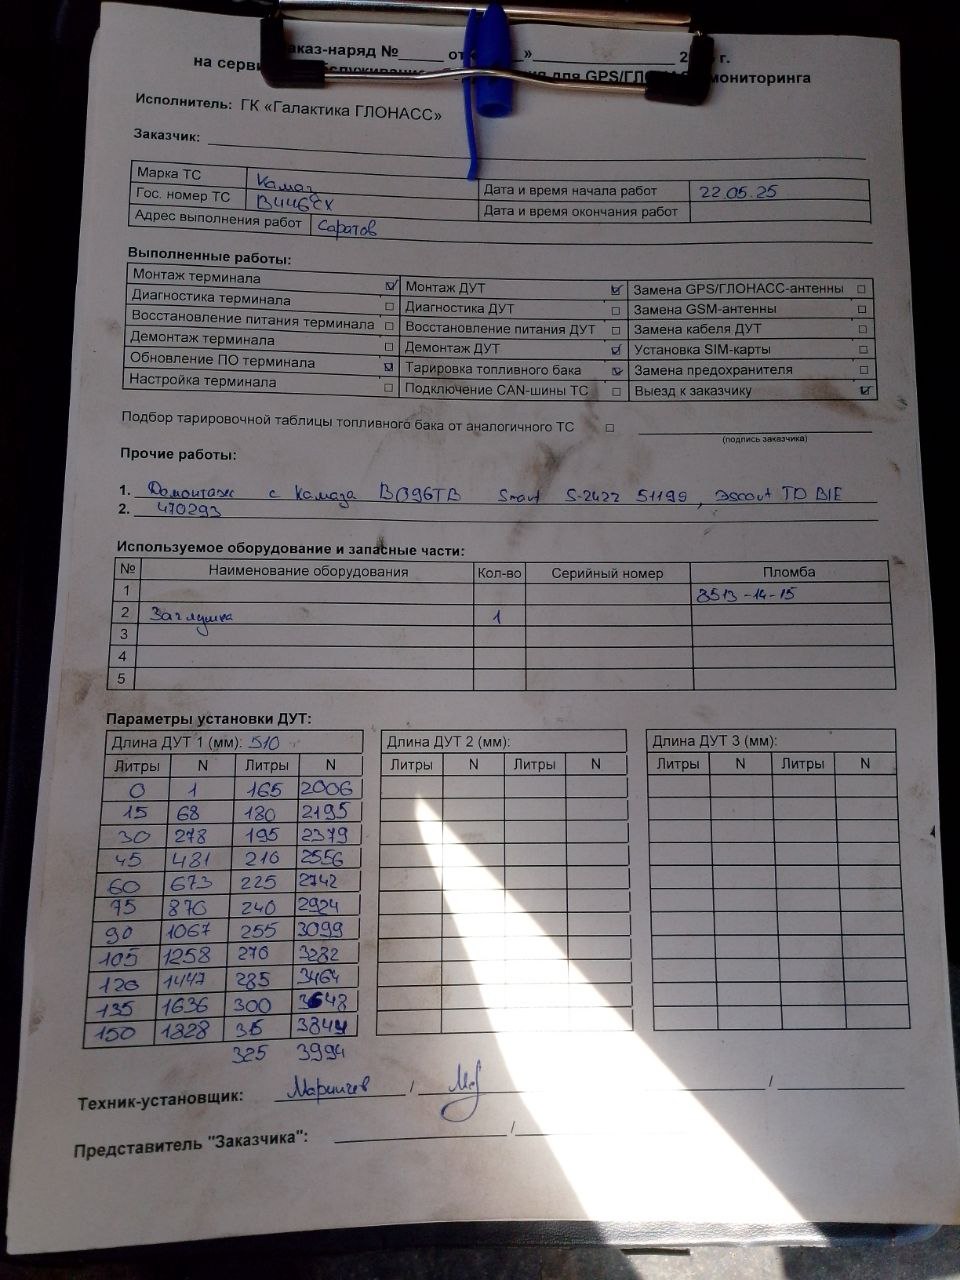 аказ-наряд №______ от « » ______ 2 г.
на серви для GPS/ГЛОНАСС мониторинга
Исполнитель: ГК «Галактика ГЛОНАСС»
Заказчик:
Марка ТС Камаз Дата и время начала работ 22.05.25
Гос. номер ТС В446ЕХ Дата и время окончания работ
Адрес выполнения работ Саратов
Выполненные работы:
Монтаж терминала ☑ Монтаж ДУТ ☑ Замена GPS/ГЛОНАСС-антенны ☐
Диагностика терминала ☐ Диагностика ДУТ ☐ Замена GSM-антенны ☐
Восстановление питания терминала ☐ Восстановление питания ДУТ ☐ Замена кабеля ДУТ ☐
Демонтаж терминала ☐ Демонтаж ДУТ ☑ Установка SIM-карты ☐
Обновление ПО терминала ☑ Тарировка топливного бака ☑ Замена предохранителя ☐
Настройка терминала ☐ Подключение CAN-шины ТС ☐ Выезд к заказчику ☑
Подбор тарировочной таблицы топливного бака от аналогичного ТС ☐
(подпись заказчика)
Прочие работы:
1. Демонтаж с Камаза В096ТВ Smart S-2422 51199, Эscort TD BLE
2. 470293
Используемое оборудование и запасные части:
№ Наименование оборудования Кол-во Серийный номер Пломба
1 8513-14-15
2 Заглушка 1
3
4
5
Параметры установки ДУТ:
Длина ДУТ 1 (мм): 510 Длина ДУТ 2 (мм): Длина ДУТ 3 (мм):
Литры N Литры N Литры N Литры N Литры N Литры N
0 1 165 2006
15 68 180 2195
30 278 195 2379
45 481 210 2556
60 673 225 2742
75 870 240 2924
90 1067 255 3099
105 1258 270 3282
120 1447 285 3464
135 1636 300 3648
150 1828 315 3844
325 3994
Техник-установщик: Маринчев / /
Представитель "Заказчика": /